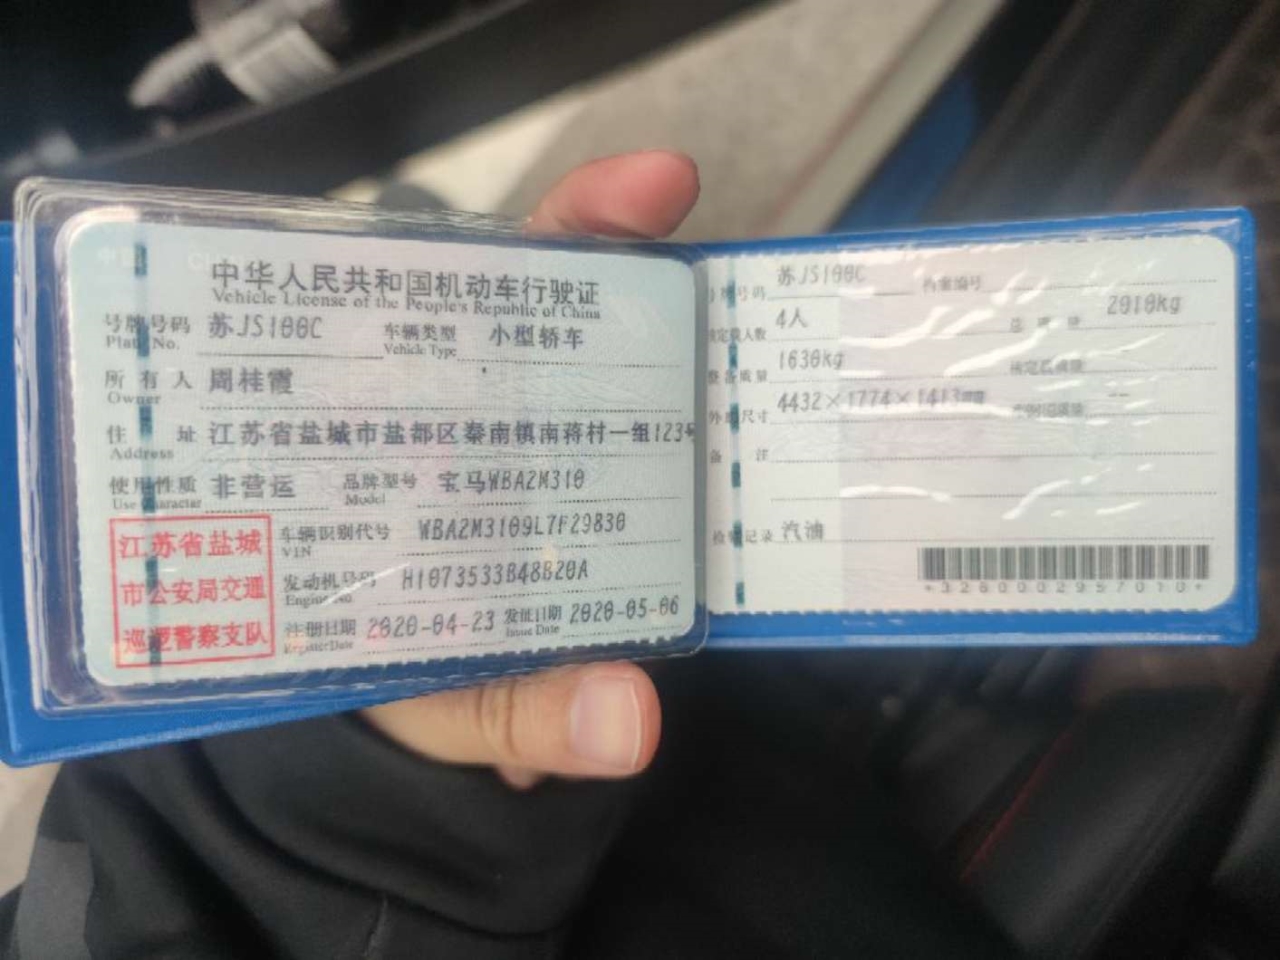 中华人民共和国机动车行驶证
Vehicle License of the People's Republic of China
号牌号码 苏JS100C 车辆类型 小型轿车
Plate No. Vehicle Type
所有人 周桂霞
Owner
住址 江苏省盐城市盐都区秦南镇南蒋村一组123号
Address
使用性质 非营运 品牌型号 宝马WBA2M310
Use Character Model
江苏省盐城
市公安局交通
巡逻警察支队
车辆识别代号 WBA2M3109L7F29830
VIN
发动机号码 H1073533B48B20A
Engine No.
注册日期 2020-04-23 发证日期 2020-05-06
Register Date Issue Date
号牌号码 苏JS100C 档案编号
核定载人数 4人 总质量 2010kg
整备质量 1630kg 核定载质量 --
外廓尺寸 4432×1774×1413mm --
备注
检验记录 汽油
*3280002957010*